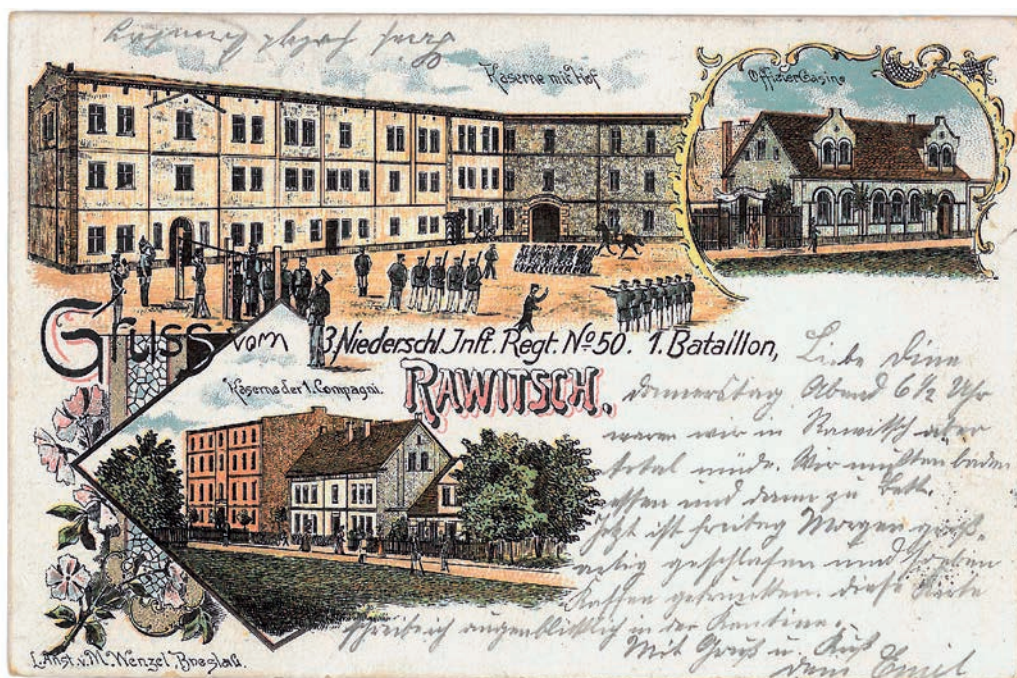 Kaserne mit Hof
OffizierCasino
Gruss vom 3, Niederschl. Inft. Regt. No 50. 1. Bataillon,
RAWITSCH.
Kaserne der 1. Compagni.
Liebe
Donnerstag Abend 6½ Uhr
waren wir in Rawitsch aber
total müde. Wir mußten baden
essen und dann zu Bett.
Jetzt ist Freitag Morgen groß-
artig geschlafen und soeben
Kaffee getrunken. Diese Karte
schreibe ich augenblicklich in der Kantine.
Mit Gruß u. Kuß
Dein Emil
L. Anst. v. M. Wenzel Breslau.